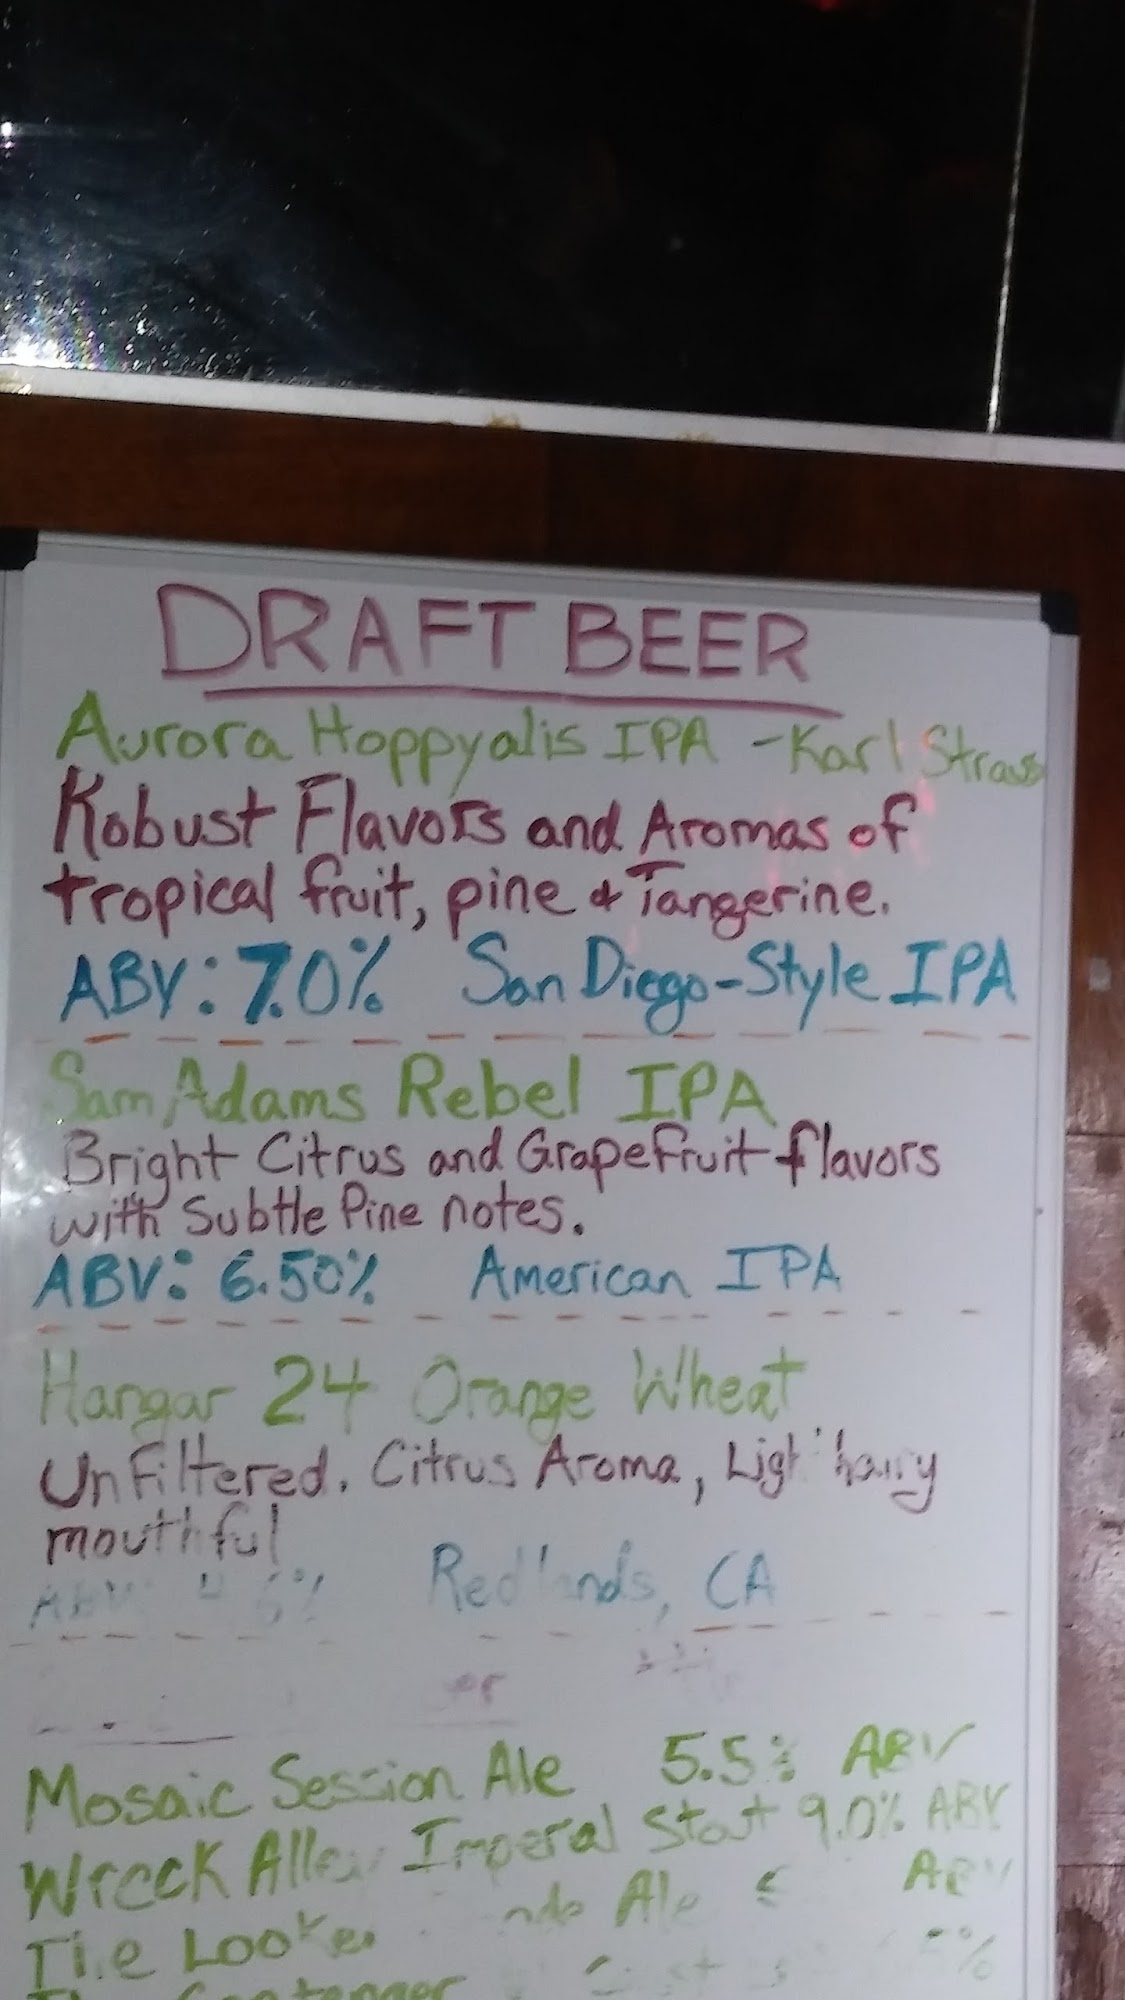 DRAFT BEER
Aurora Hoppyalis IPA - Karl Strauss
Robust Flavors and Aromas of
tropical fruit, pine & Tangerine.
ABV: 7.0% San Diego-Style IPA
Sam Adams Rebel IPA
Bright Citrus and Grapefruit flavors
with Subtle Pine notes.
ABV: 6.50% American IPA
Hangar 24 Orange Wheat
UnFiltered. Citrus Aroma,
mouthful
ABV Redlands, CA
Mosaic Session Ale 5.5% ABV
Wreck Alley Imperal Stout 9.0% ABV
Ale ABV